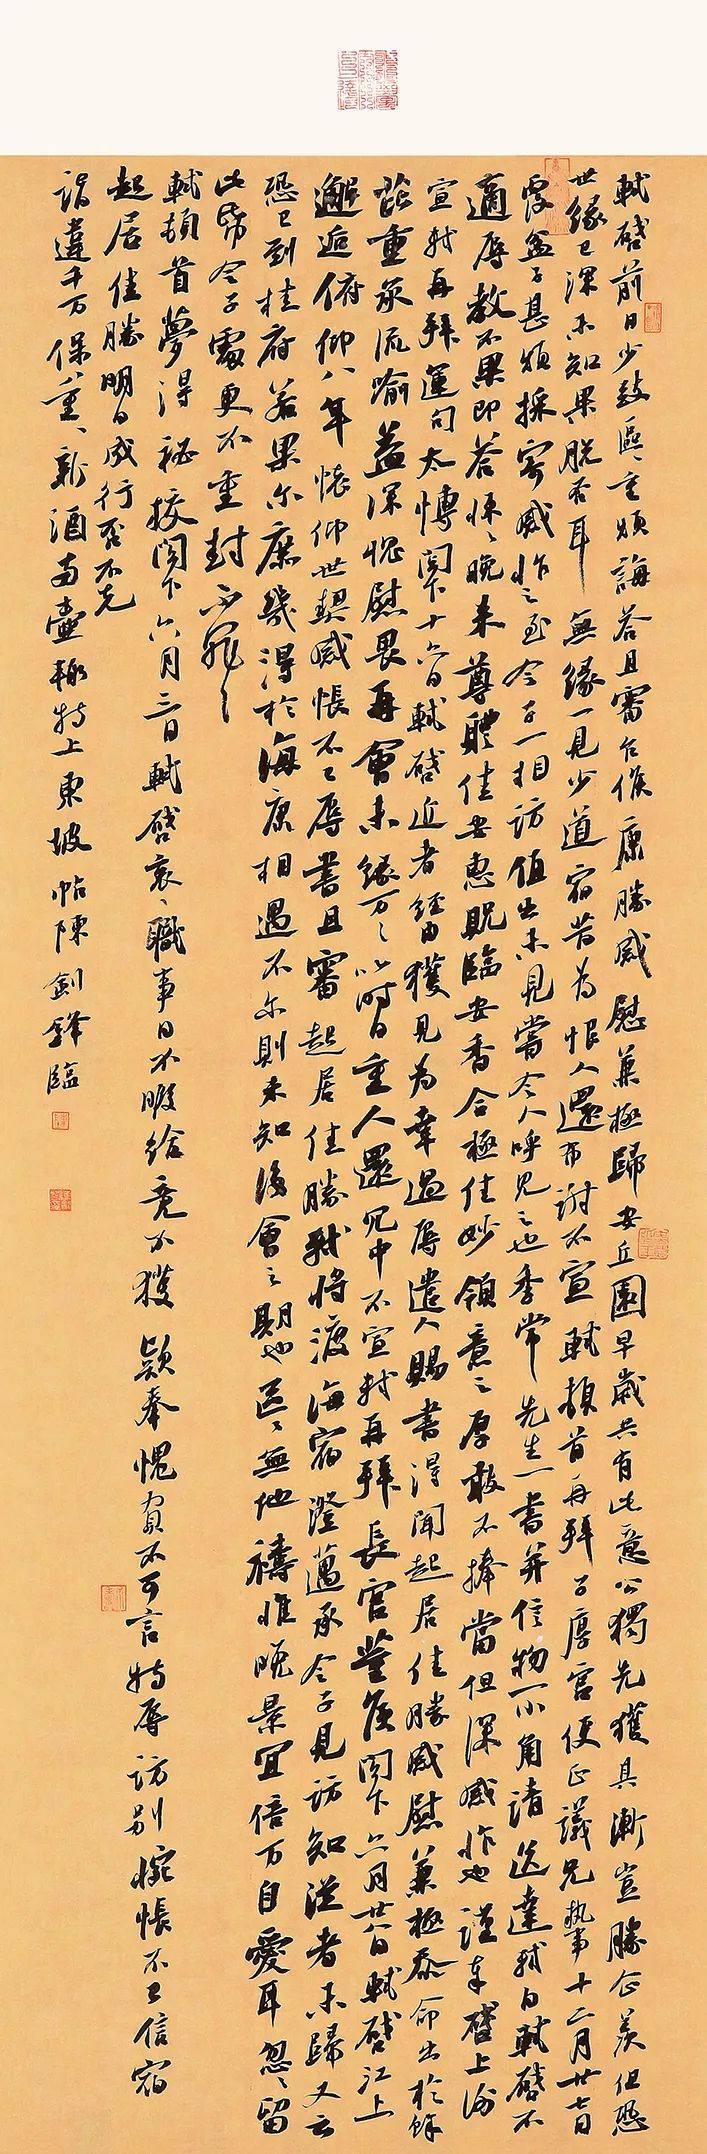 軾啓前日少致區〻重煩誨答且審台候康勝感慰兼極歸安丘園早歲共有此意公獨先獲其漸豈勝企羨但恐
世緣已深未知果脫否耳無緣一見少道宿昔為恨人還布謝不宣軾頓首再拜子厚宮使正議兄執事十二月廿七日
覆盆子甚煩採寄感怍之至令子一相訪值出未見當令人呼見之也季常先生一書并信物一小角請送達軾白軾啓不
適辱教不果即答悚〻晚來尊體佳安惠貺臨安香合極佳妙領意之厚敢不捧當但深感怍也謹奉啓上謝
宣軾再拜運句太博閣下十六日軾啓近者經由獲見為幸過辱遣人賜書得聞起居佳勝感慰兼極忝命出於餘
茫重承流喻益深愧慰畏再會未緣万〻以時自重人還冗中不宣軾再拜長官董侯閣下六月廿八日軾啓江上
邂逅俯仰八年懷仰世契感悵不已辱書且審起居佳勝軾將渡海宿澄邁承令子見訪知從者未歸又云
恐已到桂府若果尔庶幾得於海康相遇不尔則未知後會之期也區〻無他禱惟晚景宜倍万自愛耳忽〻留
此帋令子處更不重封不罪〻
軾頓首夢得秘校閣下六月三日軾啓衮〻職事日不暇給竟不獲款奉愧負不可言特辱訪別惋悵不已信宿
起居佳勝明日成行否不克
詣違千万保重〻新酒兩壺輒持上東坡帖陳劍鋒臨